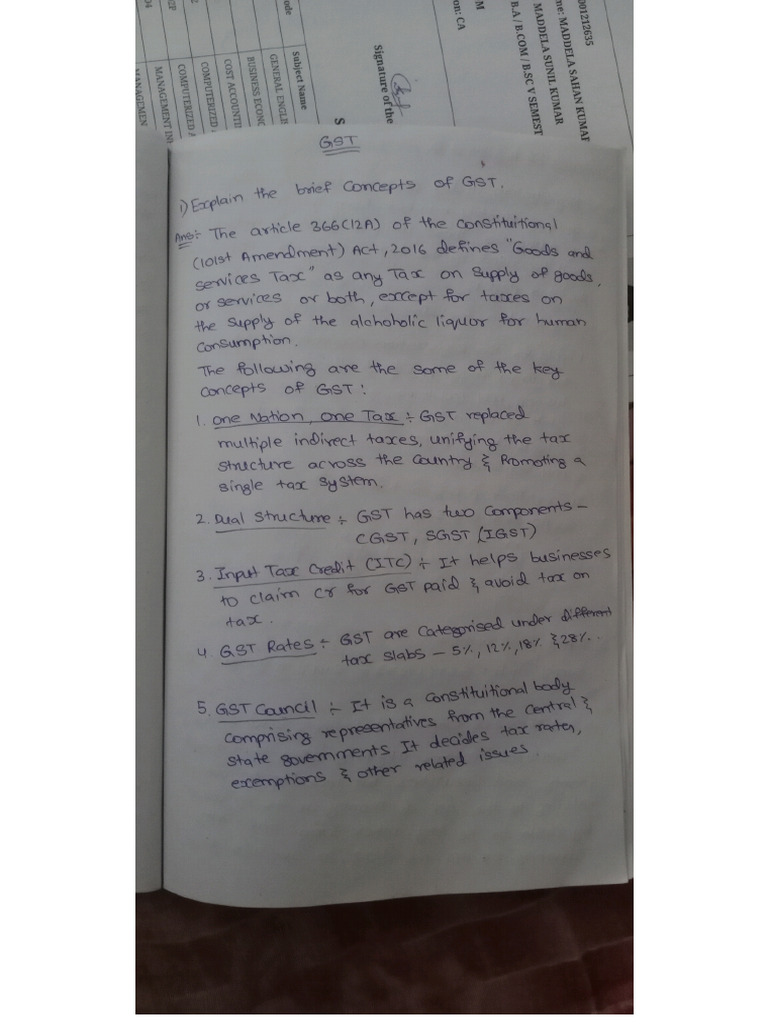 001212635
me: MADDELA SAHAN KUMAR
MADDELA SUNIL KUMAR
B.A / B.COM / B.SC V SEMEST
M
on: CA
Signature of the
S
ode
Subject Name
GENERAL ENGLIS
BUSINESS ECONO
COST ACCOUNTI
COMPUTERIZED
COMPUTERIZED A
MANAGEMENT IN
MANAGEMEN
GST
1) Explain the brief Concepts of GST.
Ans:- The article 366(12A) of the constituitional
(101st Amendment) Act, 2016 defines "Goods and
services Tax" as any Tax on supply of goods,
or services or both, except for taxes on
the supply of the alchoholic liquor for human
consumption.
The following are the some of the key
concepts of GST :
1. One Nation, One Tax :- GST replaced
multiple indirect taxes, unifying the tax
structure across the Country & Promoting a
single tax system.
2. Dual Structure :- GST has two Components -
CGST, SGST (IGST)
3. Input Tax Credit (ITC) :- It helps businesses
to claim cr for GST paid & avoid tax on
tax.
4 GST Rates :- GST are Categorised under different
tax slabs - 5%, 12%, 18% & 28%.
5. GST Council :- It is a Constituitional body
comprising representatives from the central &
state governments. It decides tax rates,
exemptions & other related issues.